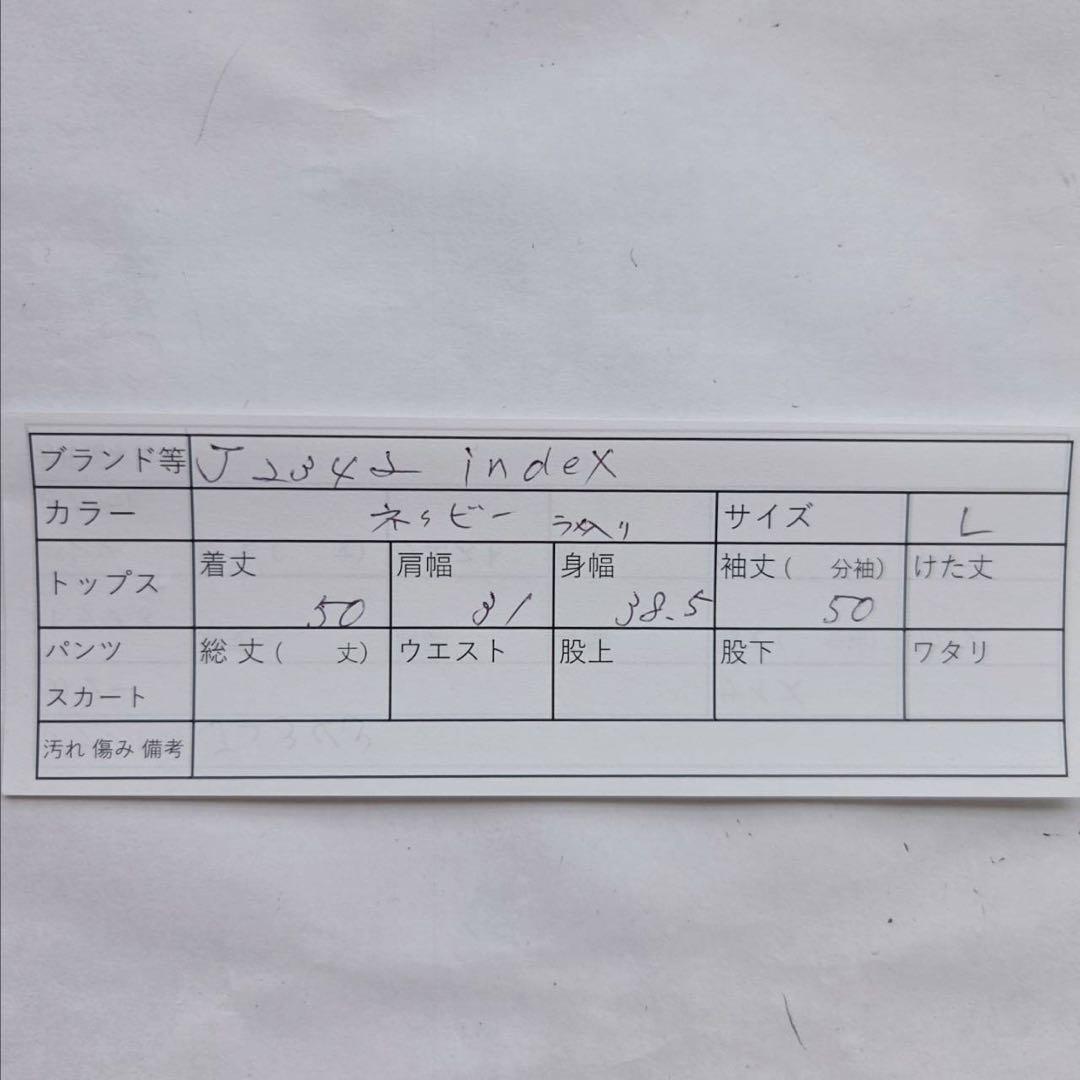 ブランド等 J2342 index
カラー ネイビー ラメ入り サイズ L
トップス 着丈 50 肩幅 31 身幅 38.5 袖丈( 分袖) 50 けた丈
パンツ スカート 総丈( 丈) ウエスト 股上 股下 ワタリ
汚れ 傷み 備考